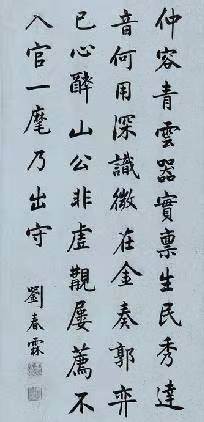 仲容青雲器實稟生民秀達
音何用深識微在金奏郭弈
已心醉山公非虛觀屢薦不
入官一麾乃出守
劉春霖